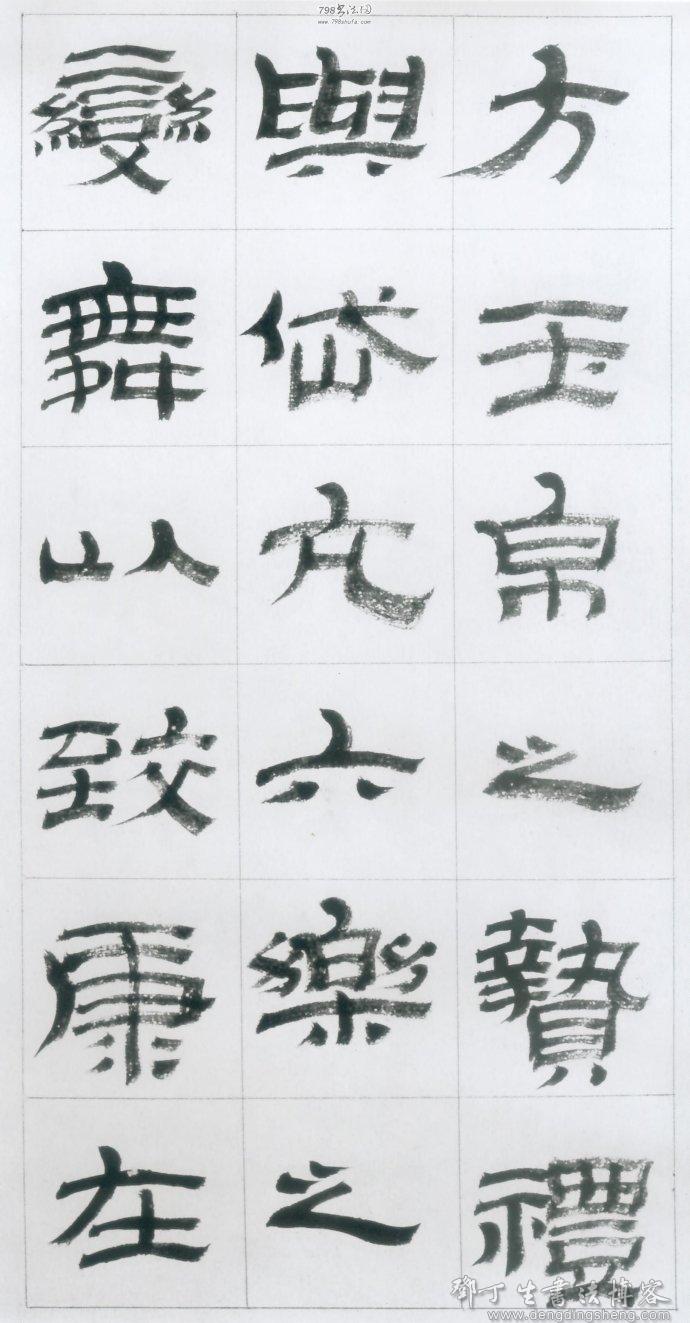 798书法网
www.798shufa.com
方玉帛之贄禮
與岱亢六樂之
變舞以致康在
鄧丁生書法博客
www.dengdingsheng.com